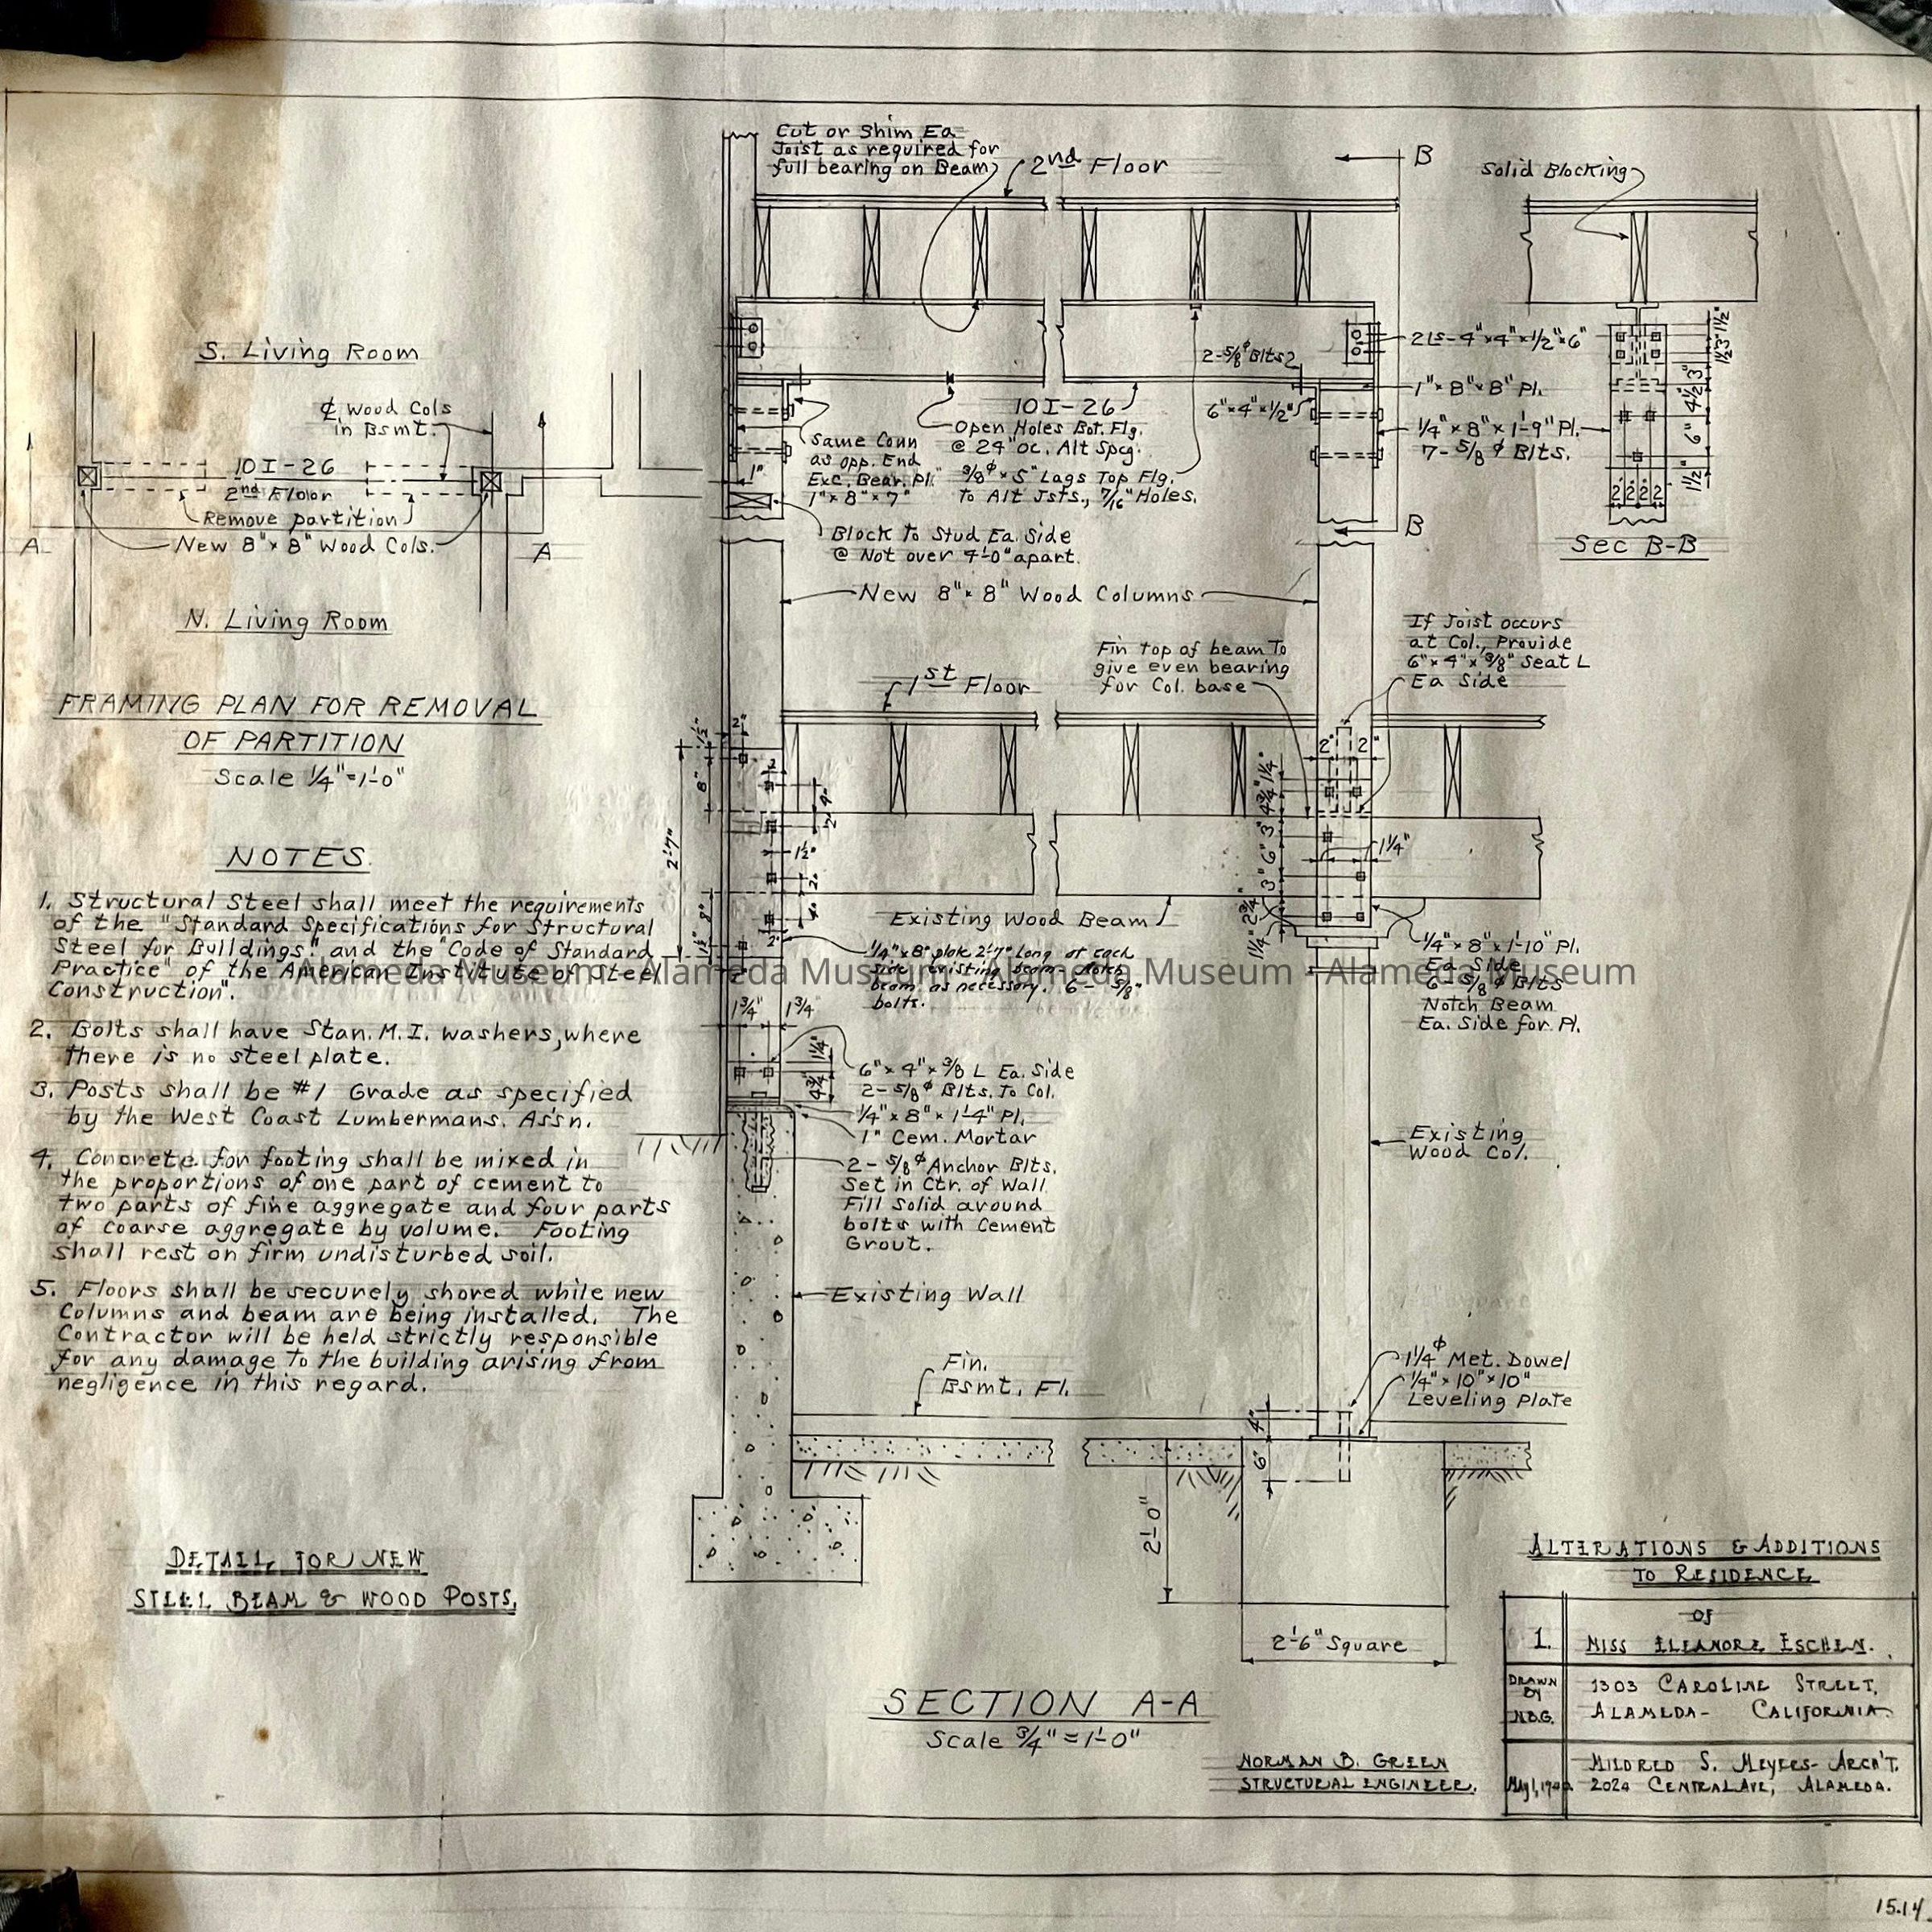 Cut or Shim Ea
Joist as required for
full bearing on Beam
2nd Floor
B
Solid Blocking
S. Living Room
℄ Wood Cols
in Bsmt.
10 I-26
2nd Floor
Remove partition
New 8"x 8" Wood Cols.
A
A
N. Living Room
FRAMING PLAN FOR REMOVAL
OF PARTITION
Scale 1/4"=1'-0"
2-5/8"φ Blts
6"x4"x1/2"
10 I-26
Open Holes Bot. Flg.
@ 24"oc. Alt Spcg.
3/8"φ x 5" Lags Top Flg.
to Alt Jsts., 7/16" Holes.
Same Conn
as opp. End
Exc. Bear. Pl.
1"x 8"x 7"
1"
Block to Stud Ea. Side
@ Not over 4'-0" apart.
2 Ls-4"x4"x1/2"x6"
1"x 8"x8" Pl.
1/4"x 8"x 1'-9" Pl.
7-5/8"φ Blts.
B
1 1/2"
3"
4 1/2"
6"
1 1/2"
2 2 2 2
Sec B-B
New 8"x 8" Wood Columns
1st Floor
Fin top of beam To
give even bearing
for Col. base
If Joist occurs
at Col., Provide
6"x 4"x 3/8" Seat L
Ea Side
2'-7"
8"
2"
1 1/2"
2" 2"
1 1/4"
4 3/4"
3"
6"
3"
2 3/4"
1 1/4"
1 1/4"
Existing Wood Beam
1/4"x 8" plate 2'-7" Long at each
side existing beam. Notch
beam as necessary. 6 - 5/8"
bolts.
1/4"x 8"x 1'-10" Pl.
Ea Side
6-5/8"φ Blts
Notch Beam
Ea. Side for Pl.
1 3/4" 1 3/4"
1 1/4"
4 3/4"
6"x 4"x 3/8 L Ea. Side
2-5/8"φ Blts. To Col.
1/4"x 8"x 1'-4" Pl.
1" Cem. Mortar
2-5/8"φ Anchor Blts.
Set in Ctr. of Wall
Fill Solid around
bolts with Cement
Grout.
Existing Wall
Existing
Wood Col.
Fin.
Bsmt. Fl.
1 1/4"φ Met. Dowel
1/4"x 10"x 10"
Leveling Plate
4"
6"
2'-0"
2'-6" Square
SECTION A-A
Scale 3/4" = 1'-0"
NOTES
1. Structural Steel shall meet the requirements
of the "Standard Specifications for Structural
Steel for Buildings" and the "Code of Standard
Practice" of the American Institute of Steel
Construction".
2. Bolts shall have Stan. M.I. washers, where
there is no steel plate.
3. Posts shall be #1 Grade as specified
by the West Coast Lumbermans. Ass'n.
4. Concrete for footing shall be mixed in
the proportions of one part of cement to
two parts of fine aggregate and four parts
of coarse aggregate by volume. Footing
shall rest on firm undisturbed soil.
5. Floors shall be securely shored while new
Columns and beam are being installed. The
Contractor will be held strictly responsible
for any damage to the building arising from
negligence in this regard.
DETAIL FOR NEW
STEEL BEAM & WOOD POSTS.
NORMAN B. GREEN
STRUCTURAL ENGINEER.
ALTERATIONS & ADDITIONS
TO RESIDENCE
OF
1. MISS ELEANORE ESCHEN.
DRAWN
BY
N.B.G.
1303 CAROLINE STREET,
ALAMEDA- CALIFORNIA
May 1,
MILDRED S. MEYERS- ARCH'T.
2024 CENTRAL AVE, ALAMEDA.
15.14
Alameda Museum - Alameda Museum - Alameda Museum - Alameda Museum